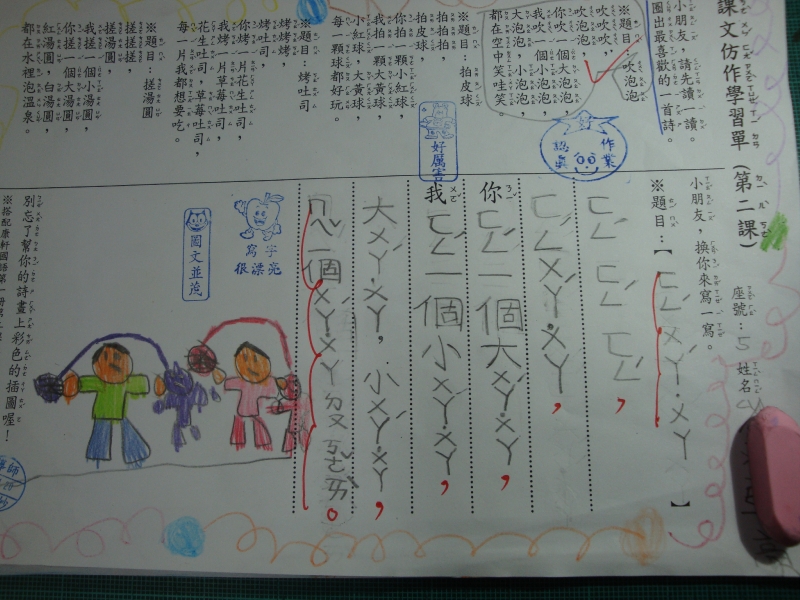 課文仿作學習單(第二課)
座號：5 姓名
小朋友，請先讀一讀。
圈出最喜歡的一首詩。
※題目：吹泡泡
吹泡泡，
吹吹吹，
你吹一個大泡泡，
我吹一個小泡泡，
大泡泡，小泡泡，
都在空中笑哇笑。
※題目：拍皮球
拍皮球，
拍拍拍，
你拍一顆小紅球，
我拍一顆大黃球，
小紅球，大黃球，
每一顆球都好玩。
※題目：烤吐司
烤吐司，
烤烤烤，
你烤一片花生吐司，
我烤一片草莓吐司，
花生吐司，草莓吐司，
每一片我都想要吃。
※題目：搓湯圓
搓湯圓，
搓搓搓，
你搓一個大湯圓，
我搓一個小湯圓，
紅湯圓，白湯圓，
都在水裡泡溫泉。
作業認真
好厲害
小朋友，換你來寫一寫。
※題目：【ㄈㄥˊㄨㄚˊ˙ㄨㄚ】
ㄈㄥˊㄈㄥˊㄈㄥˊ，
ㄈㄥˊㄨㄚˊ˙ㄨㄚ，
你ㄈㄥˊ一個大ㄨㄚˊ˙ㄨㄚ，
我ㄈㄥˊ一個小ㄨㄚˊ˙ㄨㄚ，
大ㄨㄚˊ˙ㄨㄚ，小ㄨㄚˊ˙ㄨㄚ，
ㄇㄟˇ一個ㄨㄚˊ˙ㄨㄚㄉㄡㄎㄜˇㄞˋ。
寫字很漂亮
圖文並茂
別忘了幫你的詩畫上彩色的插圖喔！
※搭配康軒國語第一冊第二課